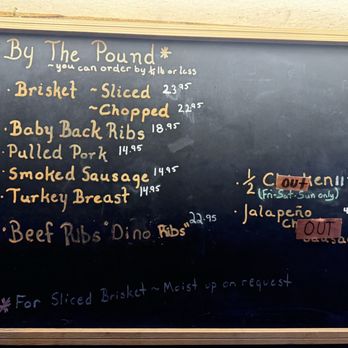 By The Pound*
~you can order by ½ lb or less
· Brisket ~ Sliced 23.95
~ Chopped 22.95
· Baby Back Ribs 18.95
· Pulled Pork 14.95
· Smoked Sausage 14.95
· Turkey Breast 14.95
· Beef Ribs "Dino Ribs" 22.95
· ½ OUT
(Fri-Sat-Sun only)
· Jalapeño
OUT
* For Sliced Brisket ~ Moist up on request